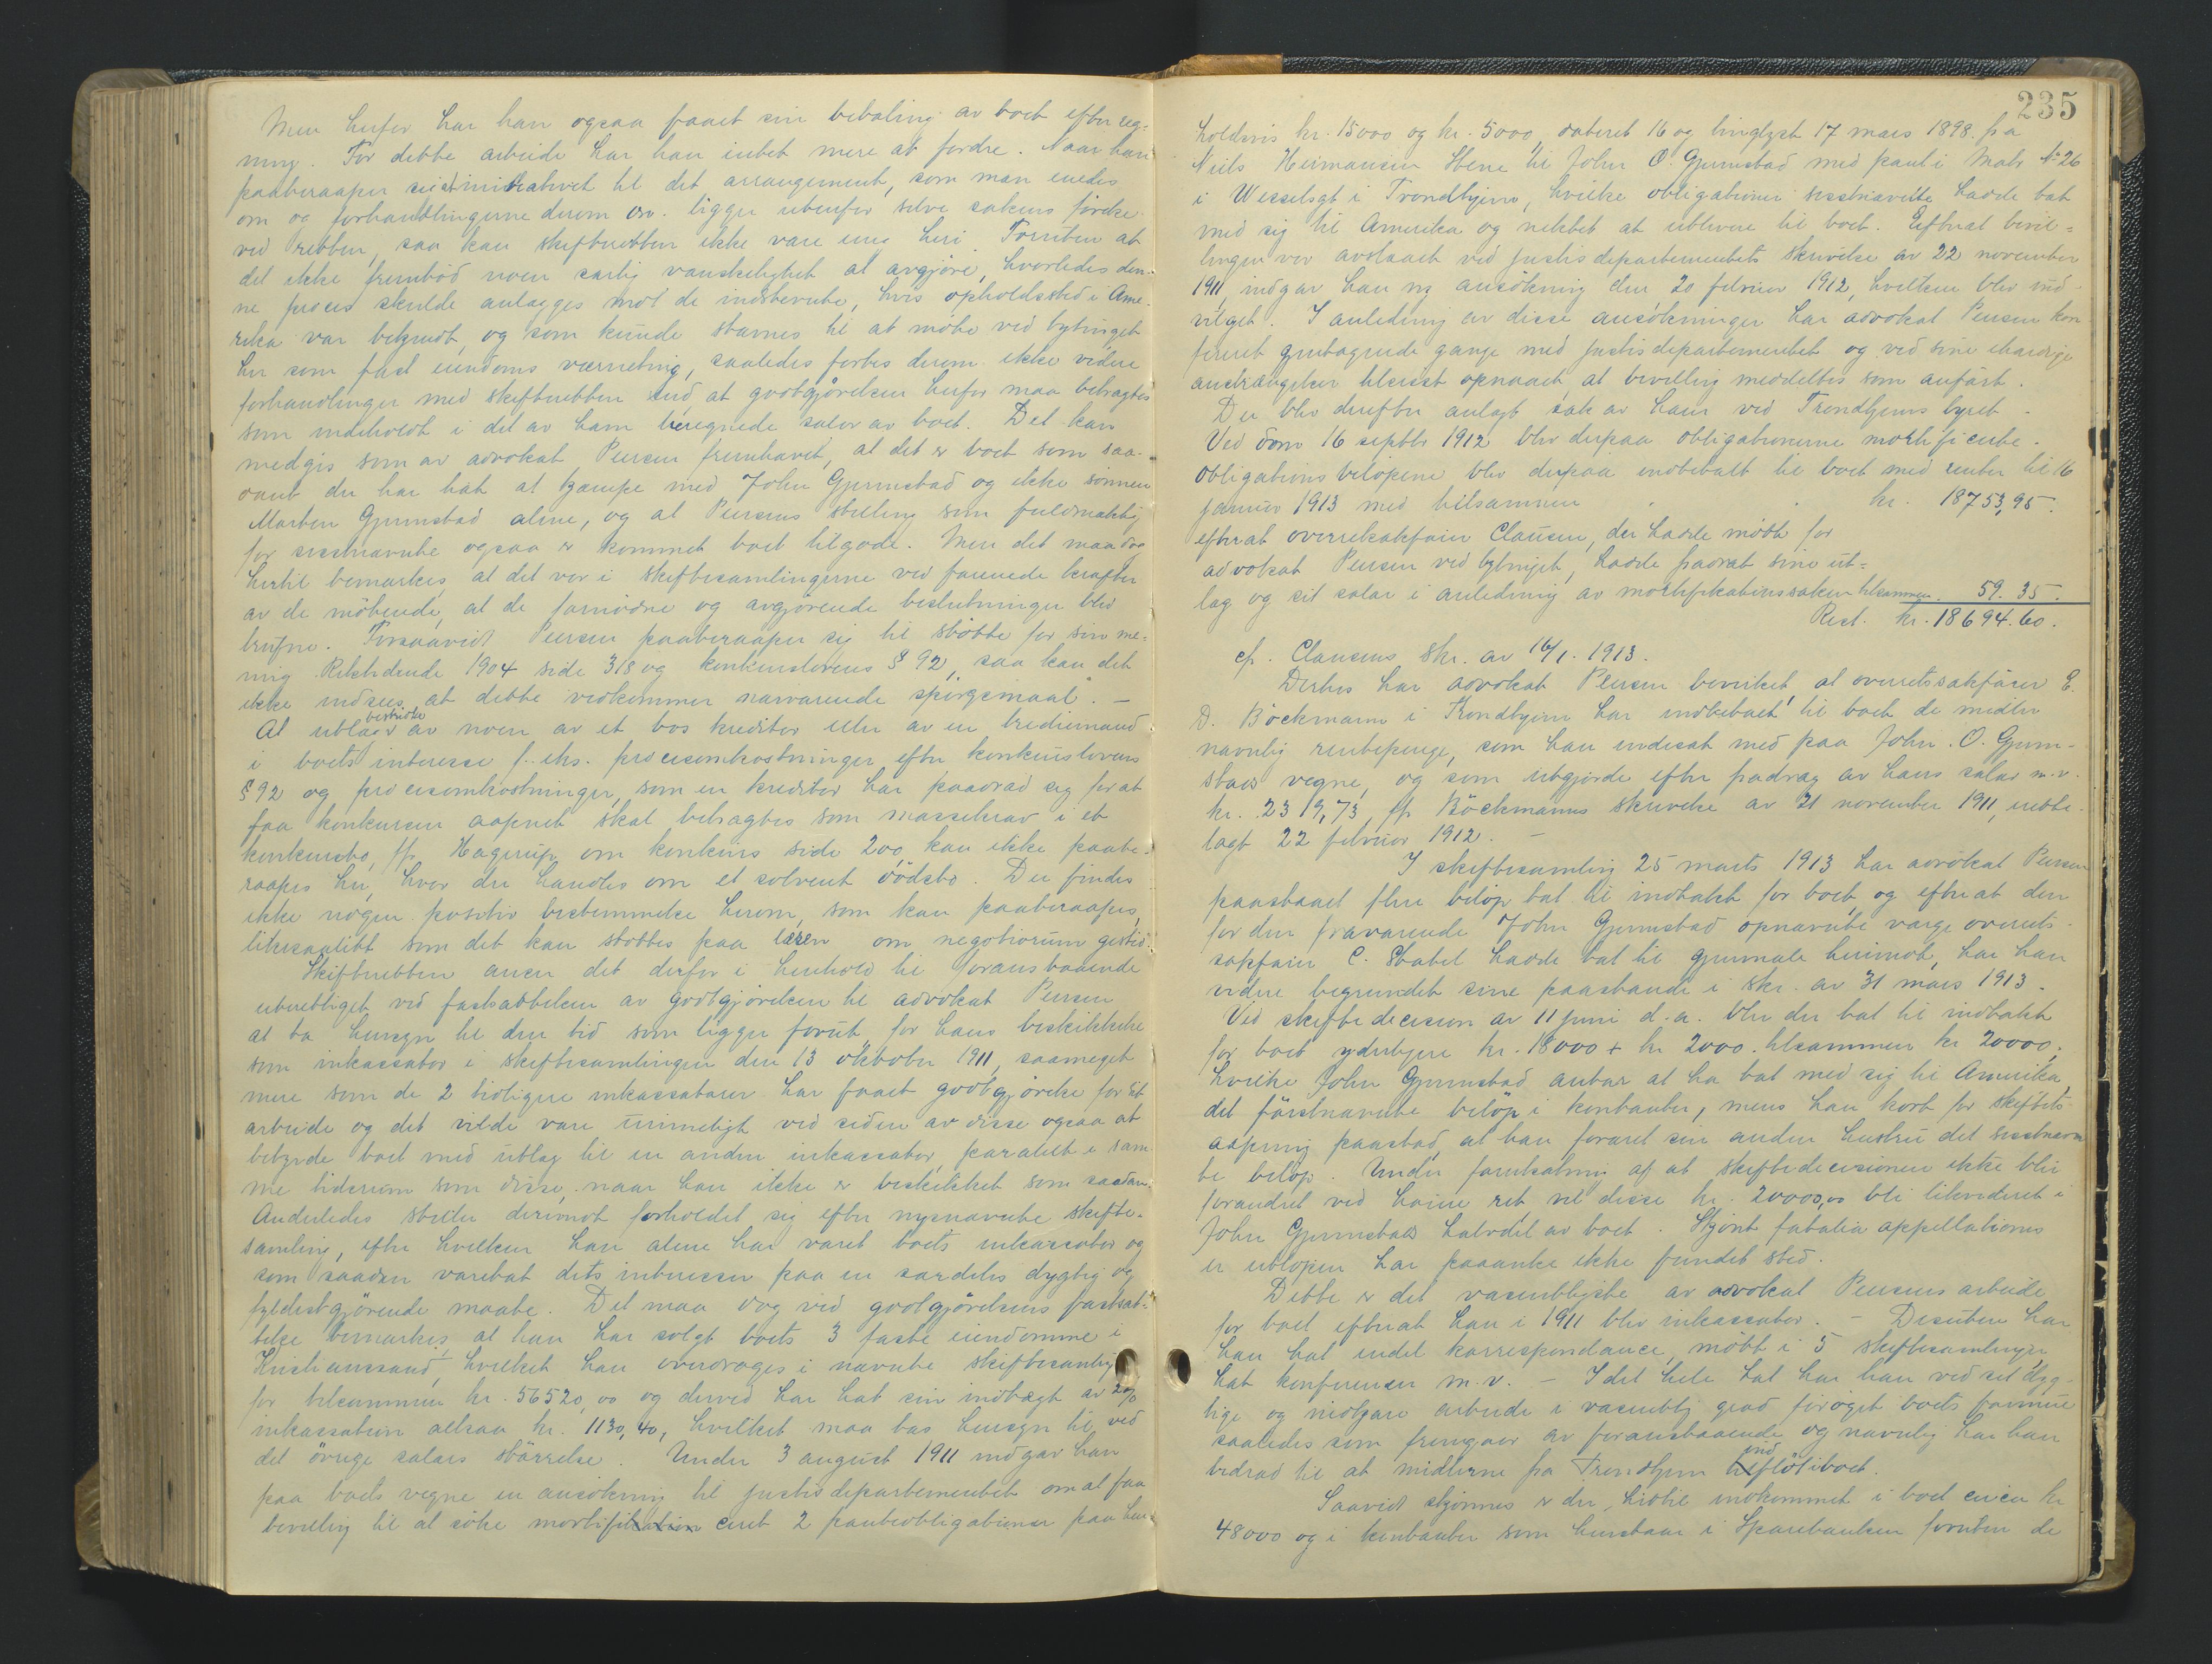 Men herfor har han ogsaa faaet sin betaling av boet efter reg-
ning. For dette arbeide har han intet mere at fordre. Naar han
paaberaaper sig at initiativet til det arrangement, som man enedes
om og forhandlingerne derom osv. ligger utenfor selve sakens
ved retten, saa kan skifteretten ikke være enig heri. Foruten at
det ikke frembød noen særlig vanskelighet at avgjöre, hvorledes den-
ne proces skulde anlægges mot de indstevnte, hvis opholdssted i Ame-
rika var bekjendt, og som kunde stevnes til at möte ved bytinget
her som fast eiendoms værneting, saaledes førtes derom ikke videre
forhandlinger med skifteretten end at godtgjörelsen herfor maa betragtes
som indeholdt i det av ham beregnede salær av boet. Det kan
medgis som av advokat Peersen fremhævet, at det er boet som saa-
dant der har hat at kjæmpe med John Gjermstad og ikke sönnen
Morten Gjermstad alene, og at Peersens stilling som fuldmægtig
for sidstnævnte ogsaa er kommet boet tilgode. Men det maa dog
hertil bemærkes, at det var i skiftesamlingerne ved forenede kræfter
av de mötende, at de fornödne og avgjörende beslutninger blev
trufne. Forsaavidt Peersen paaberaaper sig til stötte for sin me-
ning Retstidende 1904 side 318 og konkurslovens § 92, saa kan det
ikke indsees, at dette vedkommer nærværende spörgsmaal. —
At utlæg bestridte av noen av et bos kreditor eller av en tredjemand
i boets interesse f. eks. procesomkostninger efter konkurslovens
§ 92 og procesomkostninger, som en kreditor har paadrad sig for at
faa konkursen aapnet skal betragtes som massekrav i et
konkursbo, jfr. Hagerup om konkurs side 200, kan ikke paabe-
raapes her, hvor der handles om et solvent dödsbo. Der findes
ikke nogen positiv bestemmelse herom, som kan paaberaapes,
likesaalitt som det kan stöttes paa læren om negotiorum gestio.
Skifteretten anser det derfor i henhold til foranstaaende
uberettiget ved fastsættelsen av godtgjörelsen til advokat Peersen
at ta hensyn til den tid som ligger forut for hans beskikkelse
som inkassator i skiftesamlingen den 13 oktober 1911, saameget
mere som de 2 tidligere inkassatorer har faaet godtgjörelse for sit
arbeide og det vilde være urimeligt ved siden av disse ogsaa at
betynde boet med utlæg til en anden inkassator paralelt i sam
me tidsrum som disse, naar han ikke er beskikket som saadan.
Anderledes stiller derimot forholdet sig efter nysnævnte skifte-
samling, efter hvilken han alene har været boets inkassator og
som saadan varetat dets interesser paa en særdeles dygtig og
fyldestgjörende maate. Det maa dog ved godtgjörelsens fastsæt-
telse bemærkes, at han har solgt boets 3 faste eiendomme i
Kristianssand, hvilket han overdroges i nævnte skiftesamling
for tilsammen kr. 56520,00 og derved har hat sin indtægt av 2%
inkassation altsaa kr. 1130,40, hvilket maa tas hensyn til ved
det övrige salærs störrelse. Under 3 august 1911 indgav han
paa boets vegne en ansökning til justisdepartementet om at faa
bevilling til at söke mortificeret 2 panteobligationer paa hen-
235
holdsvis kr. 15000 og kr. 5000, dateret 16 og tinglyst 17 mars 1898 fra
Niels Hermansen Stene til John O. Gjermstad med pant i Matr № 26
i Wesselsgt i Trondhjem, hvilke obligationer sisstnævnte hadde tat
med sig til Amerika og nektet at utlevere til boet. Efterat bevil-
lingen var avslaaet ved justisdepartementets skrivelse av 22 november
1911, indgav han ny ansökning den 20 februar 1912, hvilken blev ind-
vilget. I anledning av disse ansökninger har advokat Peersen kon
fereret gjentagende gange med justisdepartementet og ved sine ihærdige
anstrængelser tilsisst opnaaet, at bevilling meddeltes som anfört.
Der blev derefter anlagt sak av ham ved Trondhjems byret.
Ved dom 16 septbr 1912 blev derpaa obligationerne mortificerte.
Obligationsbelöpene blev derpaa indbetalt til boet med renter til 16
januar 1913 med tilsammen kr. 18753,95.
efterat overretssakförer Clausen, der hadde mött for
advokat Peersen ved bytinget, hadde fradrat sine ut-
læg og sit salær i anledning av mortifikationssaken tilsammen. 59.35.
Rest. kr. 18694.60.
cfr. Clausens skr. av 16/1. 1913.
Dertes har advokat Peersen bevirket, at overretssakförer E.
D. Böckmann i Trondhjem har indbetalt til boet de midler
navnlig rentepenge, som han indesat med paa John. O. Gjerm-
stads vegne, og som utgjorde efter fradrag av hans salær m.v.
kr. 2319,73, jfr Böckmanns skrivelse av 21 november 1911, irette-
lagt 22 februar 1912. —
I skiftesamling 25 marts 1913 har advokat Peersen
paastaaet flere beløp tat til indtækt for boet, og efterat den
for den fraværende John Gjermstad opnævnte værge overrets-
sakförer C. Stabel hadde tat til gjenmæle herimot, har han
videre begrundet sine paastande i skr. av 31 mars 1913.
Ved skiftedecision av 11 juni d.a. blev der tat til indtækt
for boet yderligere kr. 18000 + kr 2000. tilsammen kr 20000,
hvilke John Gjermstad antar at ha tat med sig til Amerika,
det förstnævnte belöp i kontanter, mens han kort for skiftets
aapning paastod, at han foræret sin anden hustru det sisstnævn
te belöp. Under forutsætning af at skiftedecisionen ikke blir
forandret ved höiere ret vil disse kr. 20000,00 bli likvideret i
John Gjermstads halvdel av boet. Skjönt fatalia appellationis
er utlöpen har paaanke ikke fundet sted.
Dette er det væsentligste av advokat Peersens arbeide
for boet efterat han i 1911 blev inkassator. — Desuten har
han hat endel korrespondance, mött i 5 skiftesamlinger
hat konferenser m.v. — I det hele tat har han ved sit dyg-
tige og nidkjære arbeide i væsentlig grad foröget boets formue
saaledes som fremgaar av foranstaaende og navnlig har han
bedrad til at midlerne fra Trondhjem indflöt i boet.
Saavidt skjönnes er der hidtil indkommet i boet circa kr
48000 og i kontanter som henstaar i Sparebanken foruten de